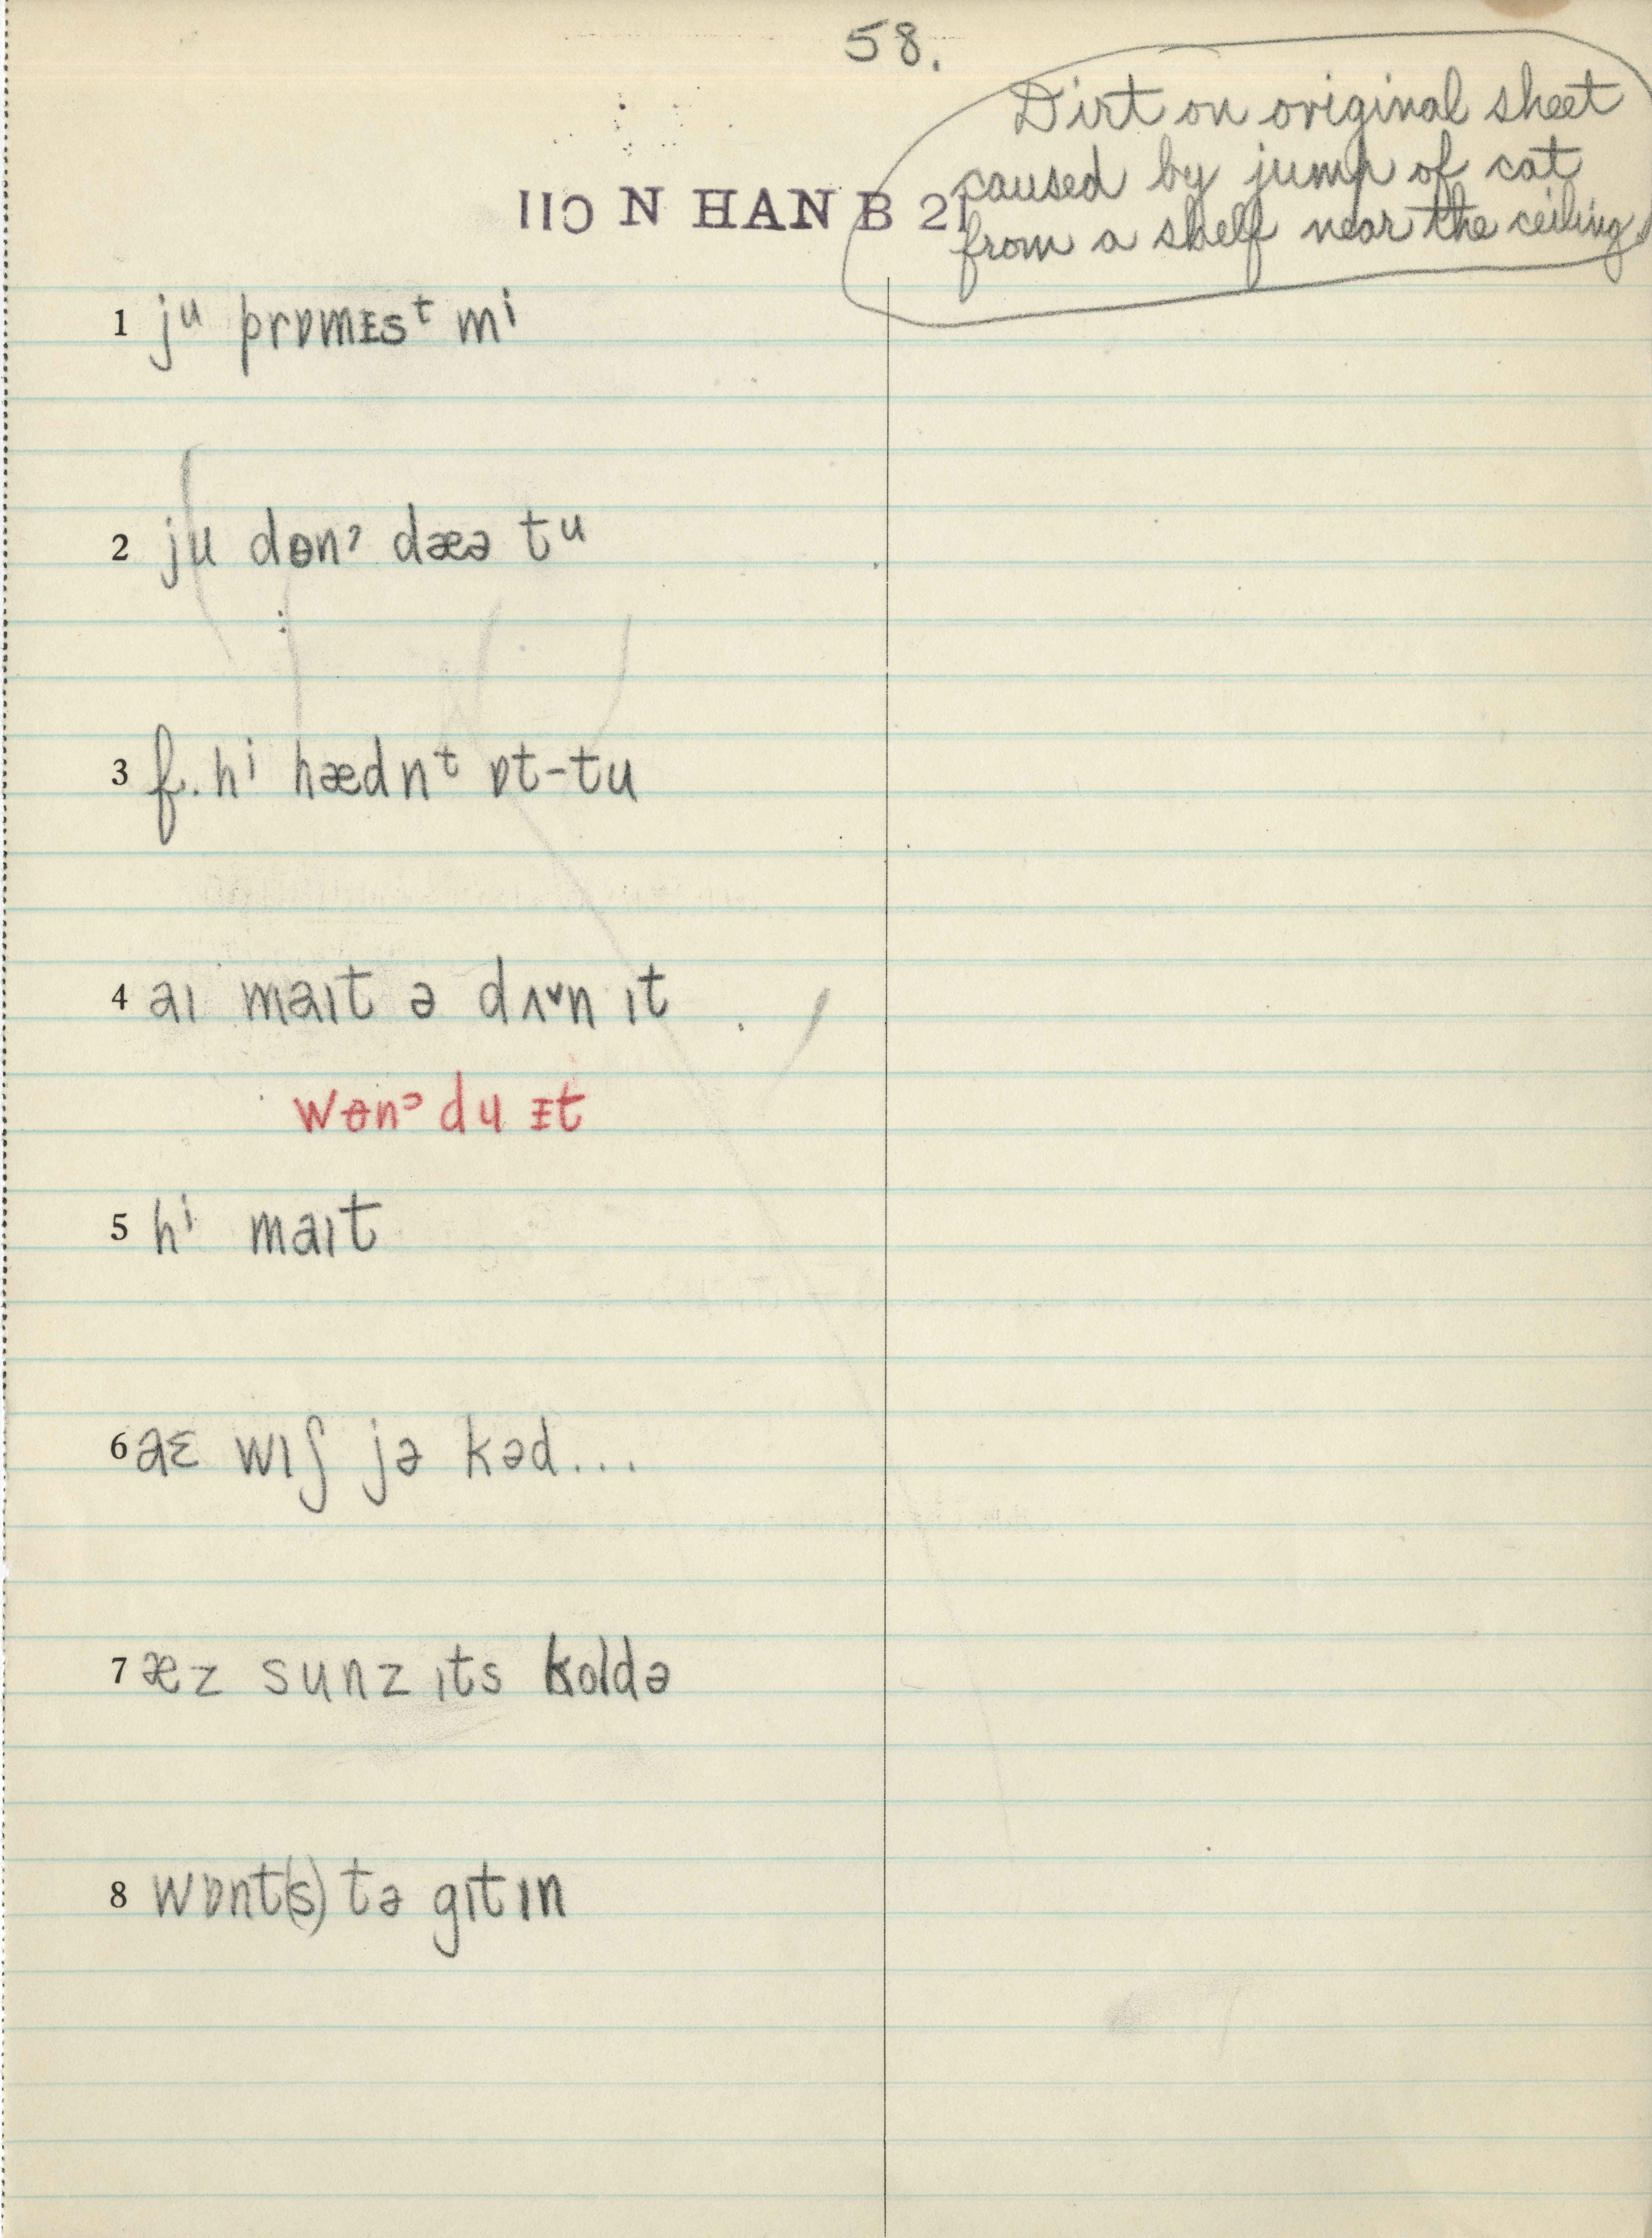 58.
Dirt on original sheet
caused by jump of cat
from a shelf near the ceiling.
IIC N HAN B 21
1 jᵘ prɒmɪsᵗ mⁱ
2 ju dɵnˀ dæə tᵘ
3 f. hⁱ hædnᵗ ɒt-tu
4 aɪ maɪt ə dʌᵛn ɪt
wɵnˀ du ɪt
5 hⁱ maɪt
6 aɛ wɪʃ jə kəd...
7 æz sunz ɪts koldə
8 wɒnt(s) tə gɪtɪn